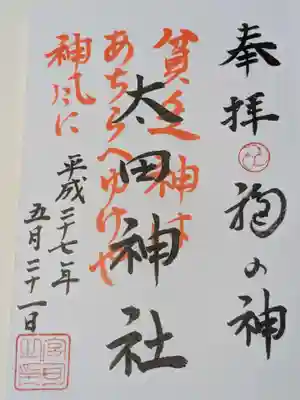 奉拝 福の神
貧乏神は
あちらへゆけや
神風に
太田神社
平成二十七年
五月二十一日